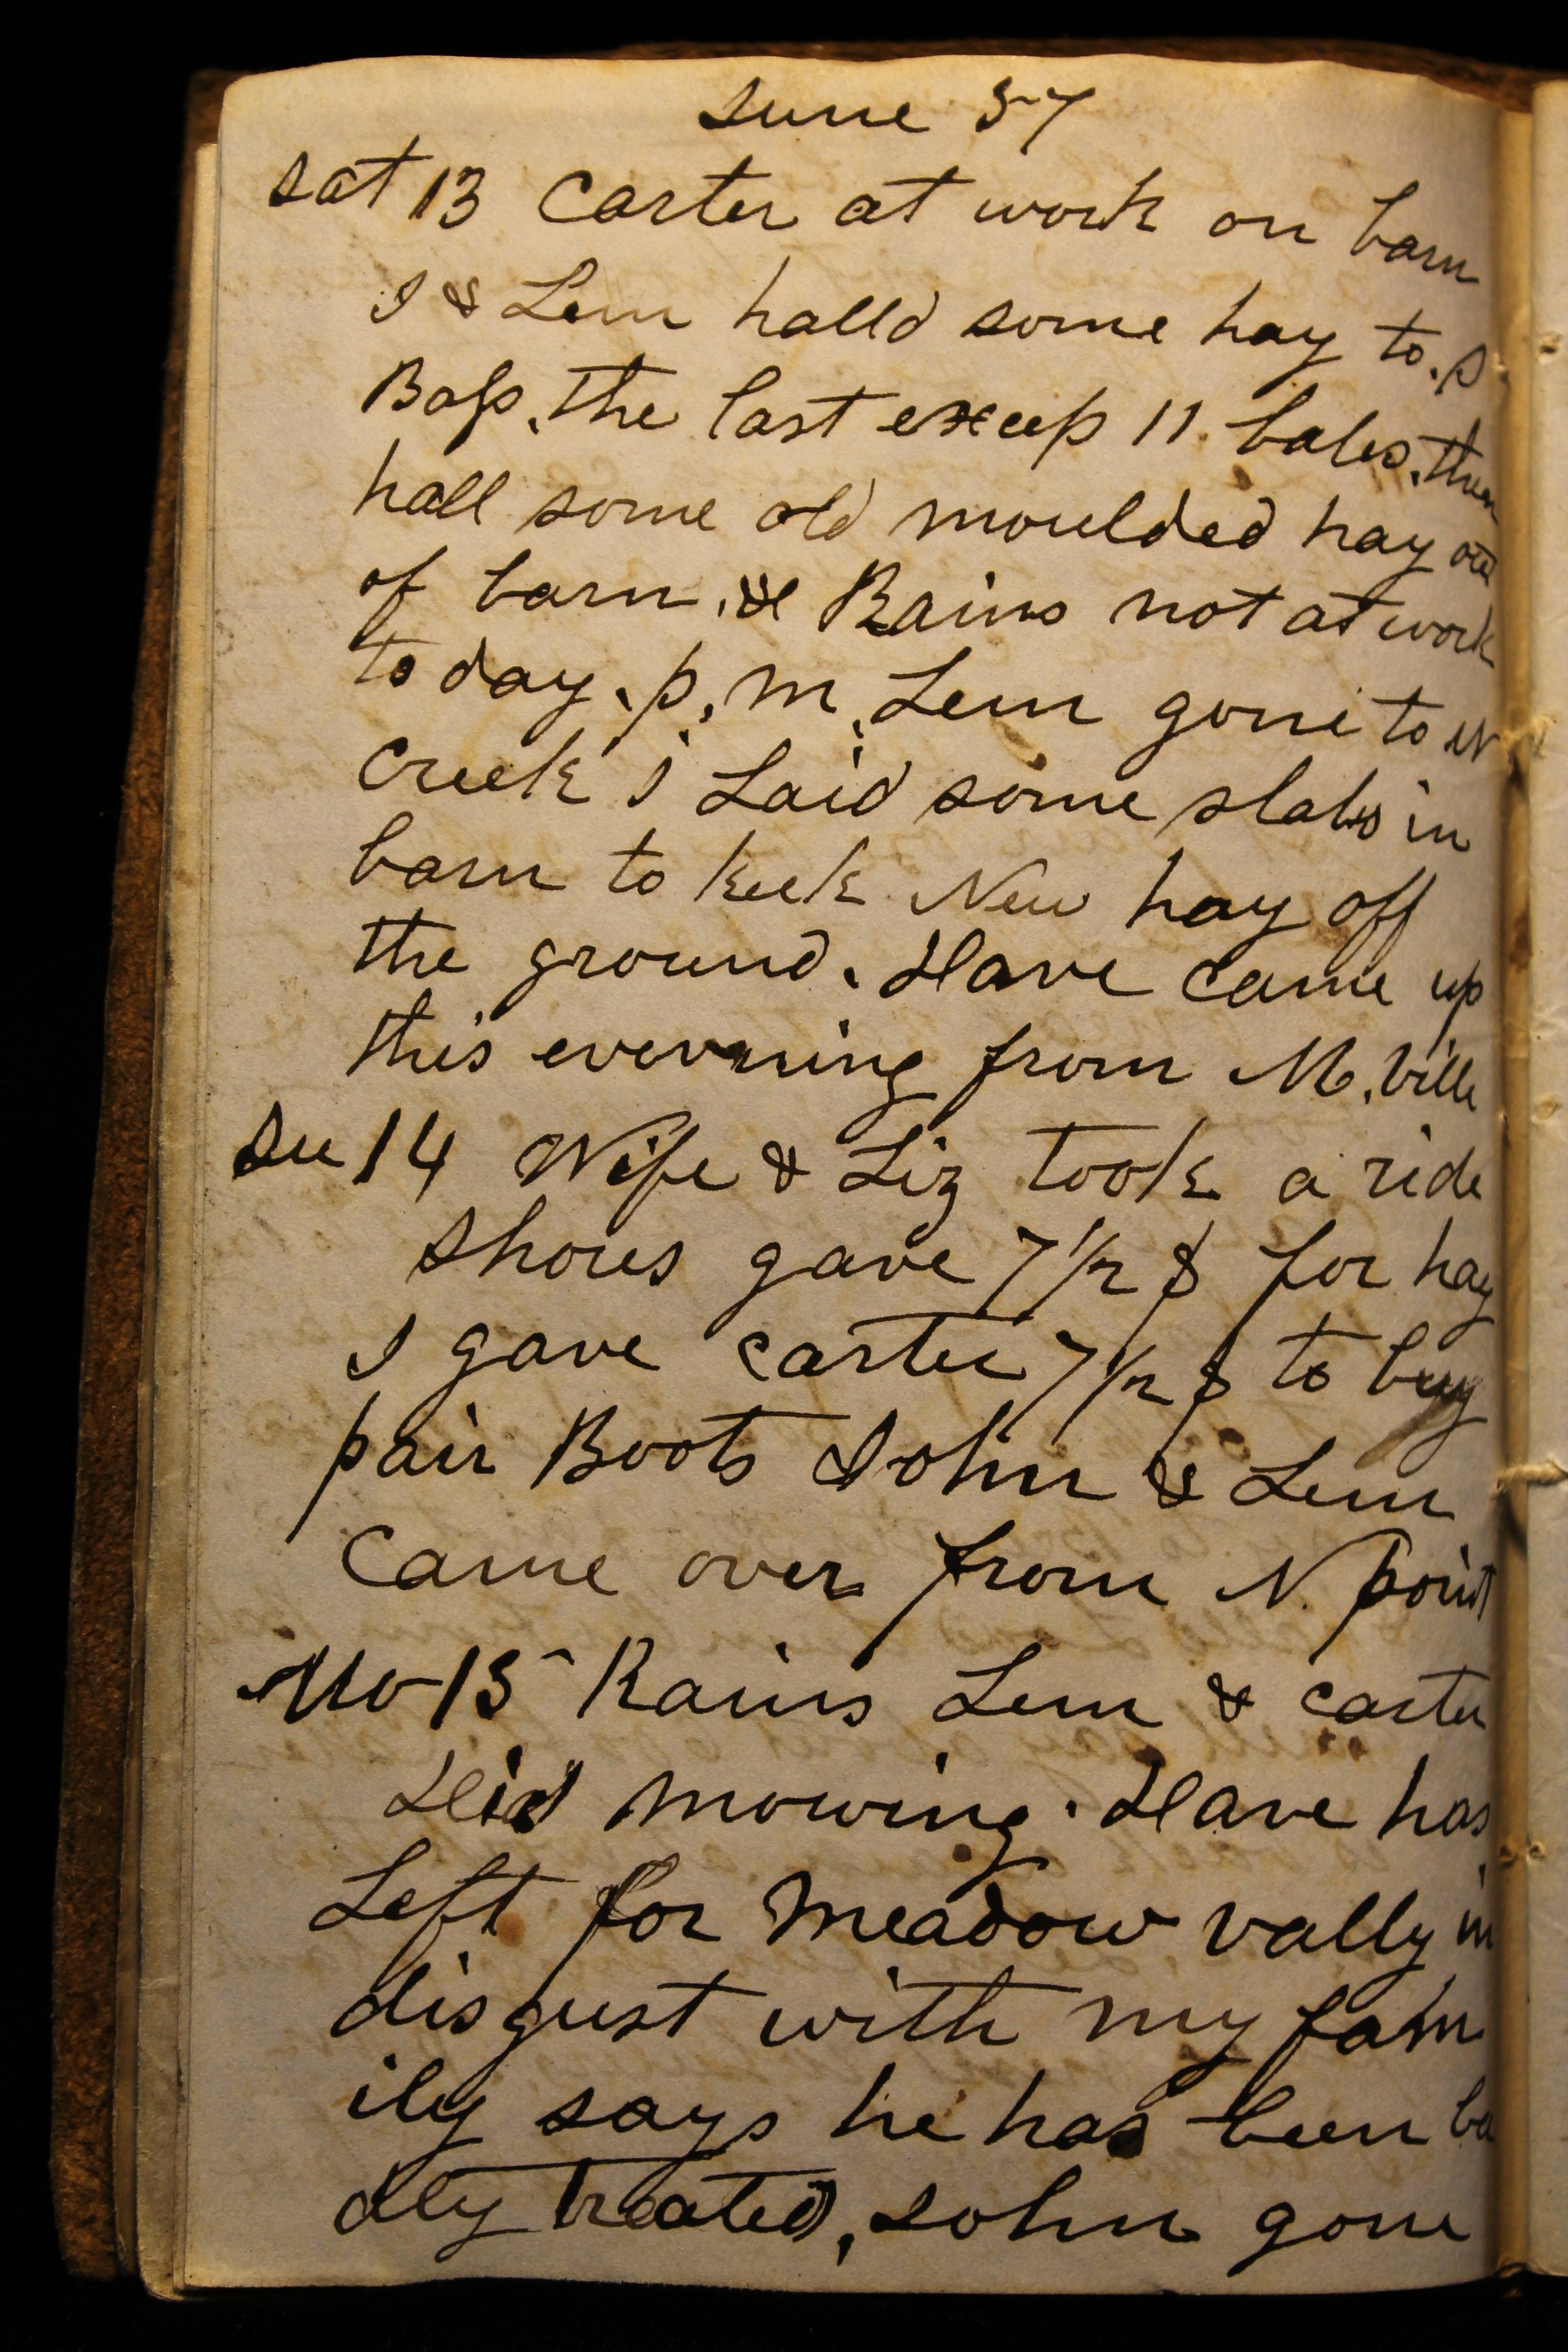 June 57
Sat 13 Carter at work on barn
I & Lem halld some hay to. P
Bass. the last excep 11. bales. then
hall some old moulded hay out
of barn. & Rains not at work
to day. p. m. Lem gone to
Creek I Laid some slabs in
barn to keek New hay off
the ground. Dave came up
this evenning from M. ville
Su 14 Wife & Liz took a ride
Shores gave 7 1/2 $ for hay
I gave carter 7 1/2 $ to buy
pair Boots John & Lem
Came over from N. point
Mo 15 Rains Lem & carter
Did mowing. Dave has
Left for Meadow vally in
disgust with my fam
ily says he has been ba
dly treated, John gone